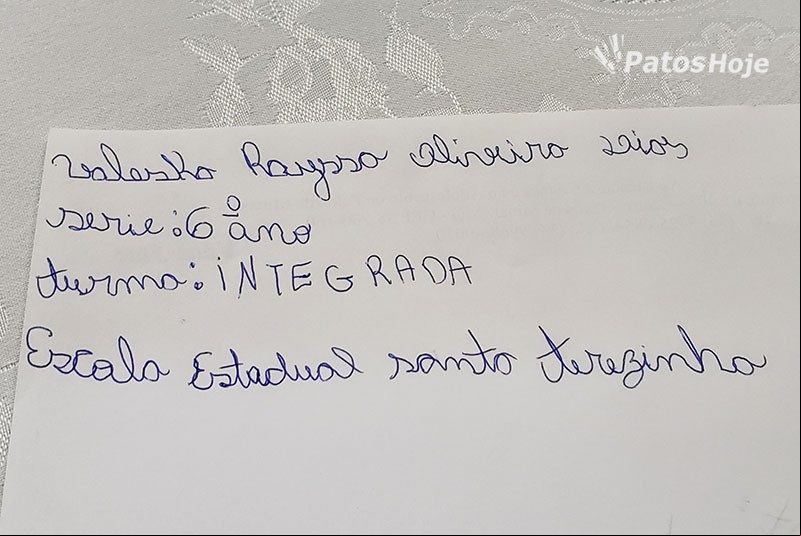 PatosHoje
Valeska Rayssa oliveira
serie: 6º ano
turma: INTEGRADA
Escola Estadual santa terezinha